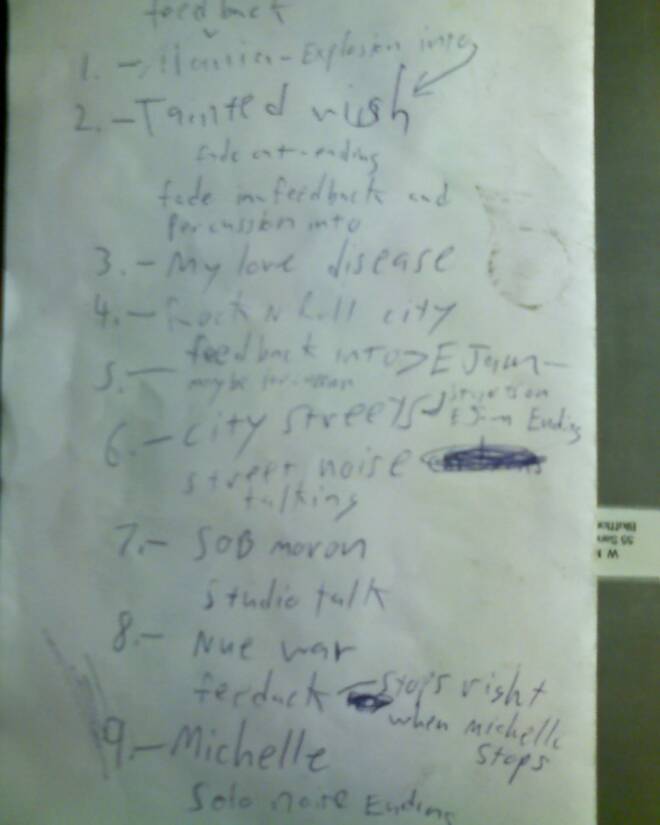 feedback
1. - Explosion into
2. - Tainted wish
fade out - ending
fade in feedback and
percussion into
3. - My love disease
4. - Rock N Roll city
5. - feedback into > E Jam -
maybe
6. - city streets starts on
E Jam Ending
street noise
talking
7. - SOB moron
studio talk
8. - Nue war
feeduck - stops right
when michelle
stops
9. - Michelle
Solo noise Ending
55